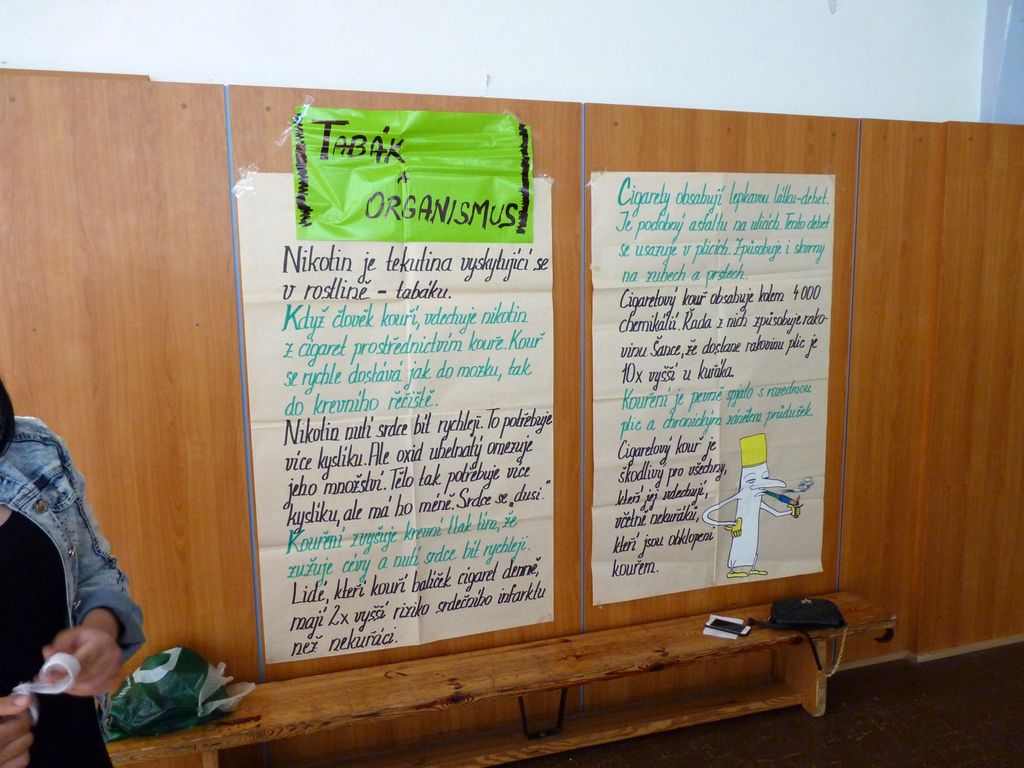 TABÁK
A
ORGANISMUS
Nikotin je tekutina vyskytující se
v rostlině - tabáku.
Když člověk kouří, vdechuje nikotin
z cigaret prostřednictvím kouře. Kouř
se rychle dostává jak do mozku, tak
do krevního řečiště.
Nikotin nutí srdce bít rychleji. To potřebuje
více kyslíku. Ale oxid uhelnatý omezuje
jeho množství. Tělo tak potřebuje více
kyslíku, ale má ho méně. Srdce se „dusí."
Kouření zvyšuje krevní tlak tím, že
zužuje cévy a nutí srdce bít rychleji.
Lidé, kteří kouří balíček cigaret denně,
mají 2x vyšší riziko srdečního infarktu
než nekuřáci.
Cigarety obsahují lepkavou látku-dehet.
Je podobný asfaltu na ulicích. Tento dehet
se usazuje v plicích. Způsobuje i skvrny
na zubech a prstech.
Cigaretový kouř obsahuje kolem 4 000
chemikálií. Řada z nich způsobuje rako-
vinu. Šance, že dostane rakovinu plic je
10x vyšší u kuřáka.
Kouření je pevně spjato s rozedmou
plic a chronickým zánětem průdušek.
Cigaretový kouř je
škodlivý pro všechny,
kteří jej vdechují,
včetně nekuřáků,
kteří jsou obklopeni
kouřem.